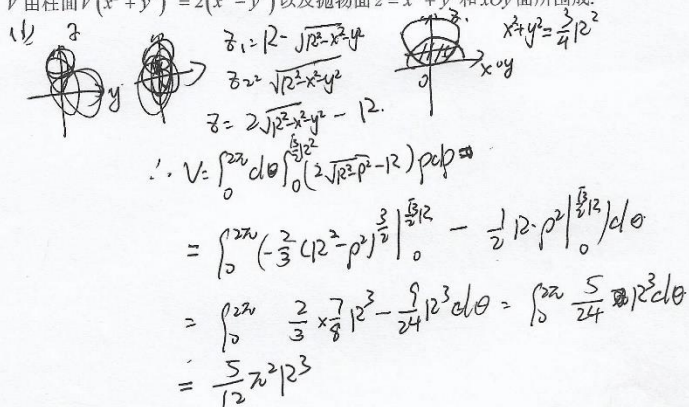 V 由柱面 V(x² + y²) = 2(x² − y²) 以及抛物面 z = x² + y² 和 xOy 面所围成.
(1) z y
z₁ = R - √(R²-x²-y²)
z₂ = √(R²-x²-y²)
z = 2√(R²-x²-y²) - R.
z xoy 0
x²+y² = 3/4 R²
∴ V = ∫₀^{2π} dθ ∫₀^{√3/2 R} (2√(R²-ρ²) - R) ρdρ
= ∫₀^{2π} (-2/3 (R²-ρ²)^{3/2} |₀^{√3/2 R} - 1/2 R·ρ² |₀^{√3/2 R}) dθ
= ∫₀^{2π} 2/3 × 7/8 R³ - 9/24 R³ dθ = ∫₀^{2π} 5/24 R³ dθ
= 5/12 π² R³